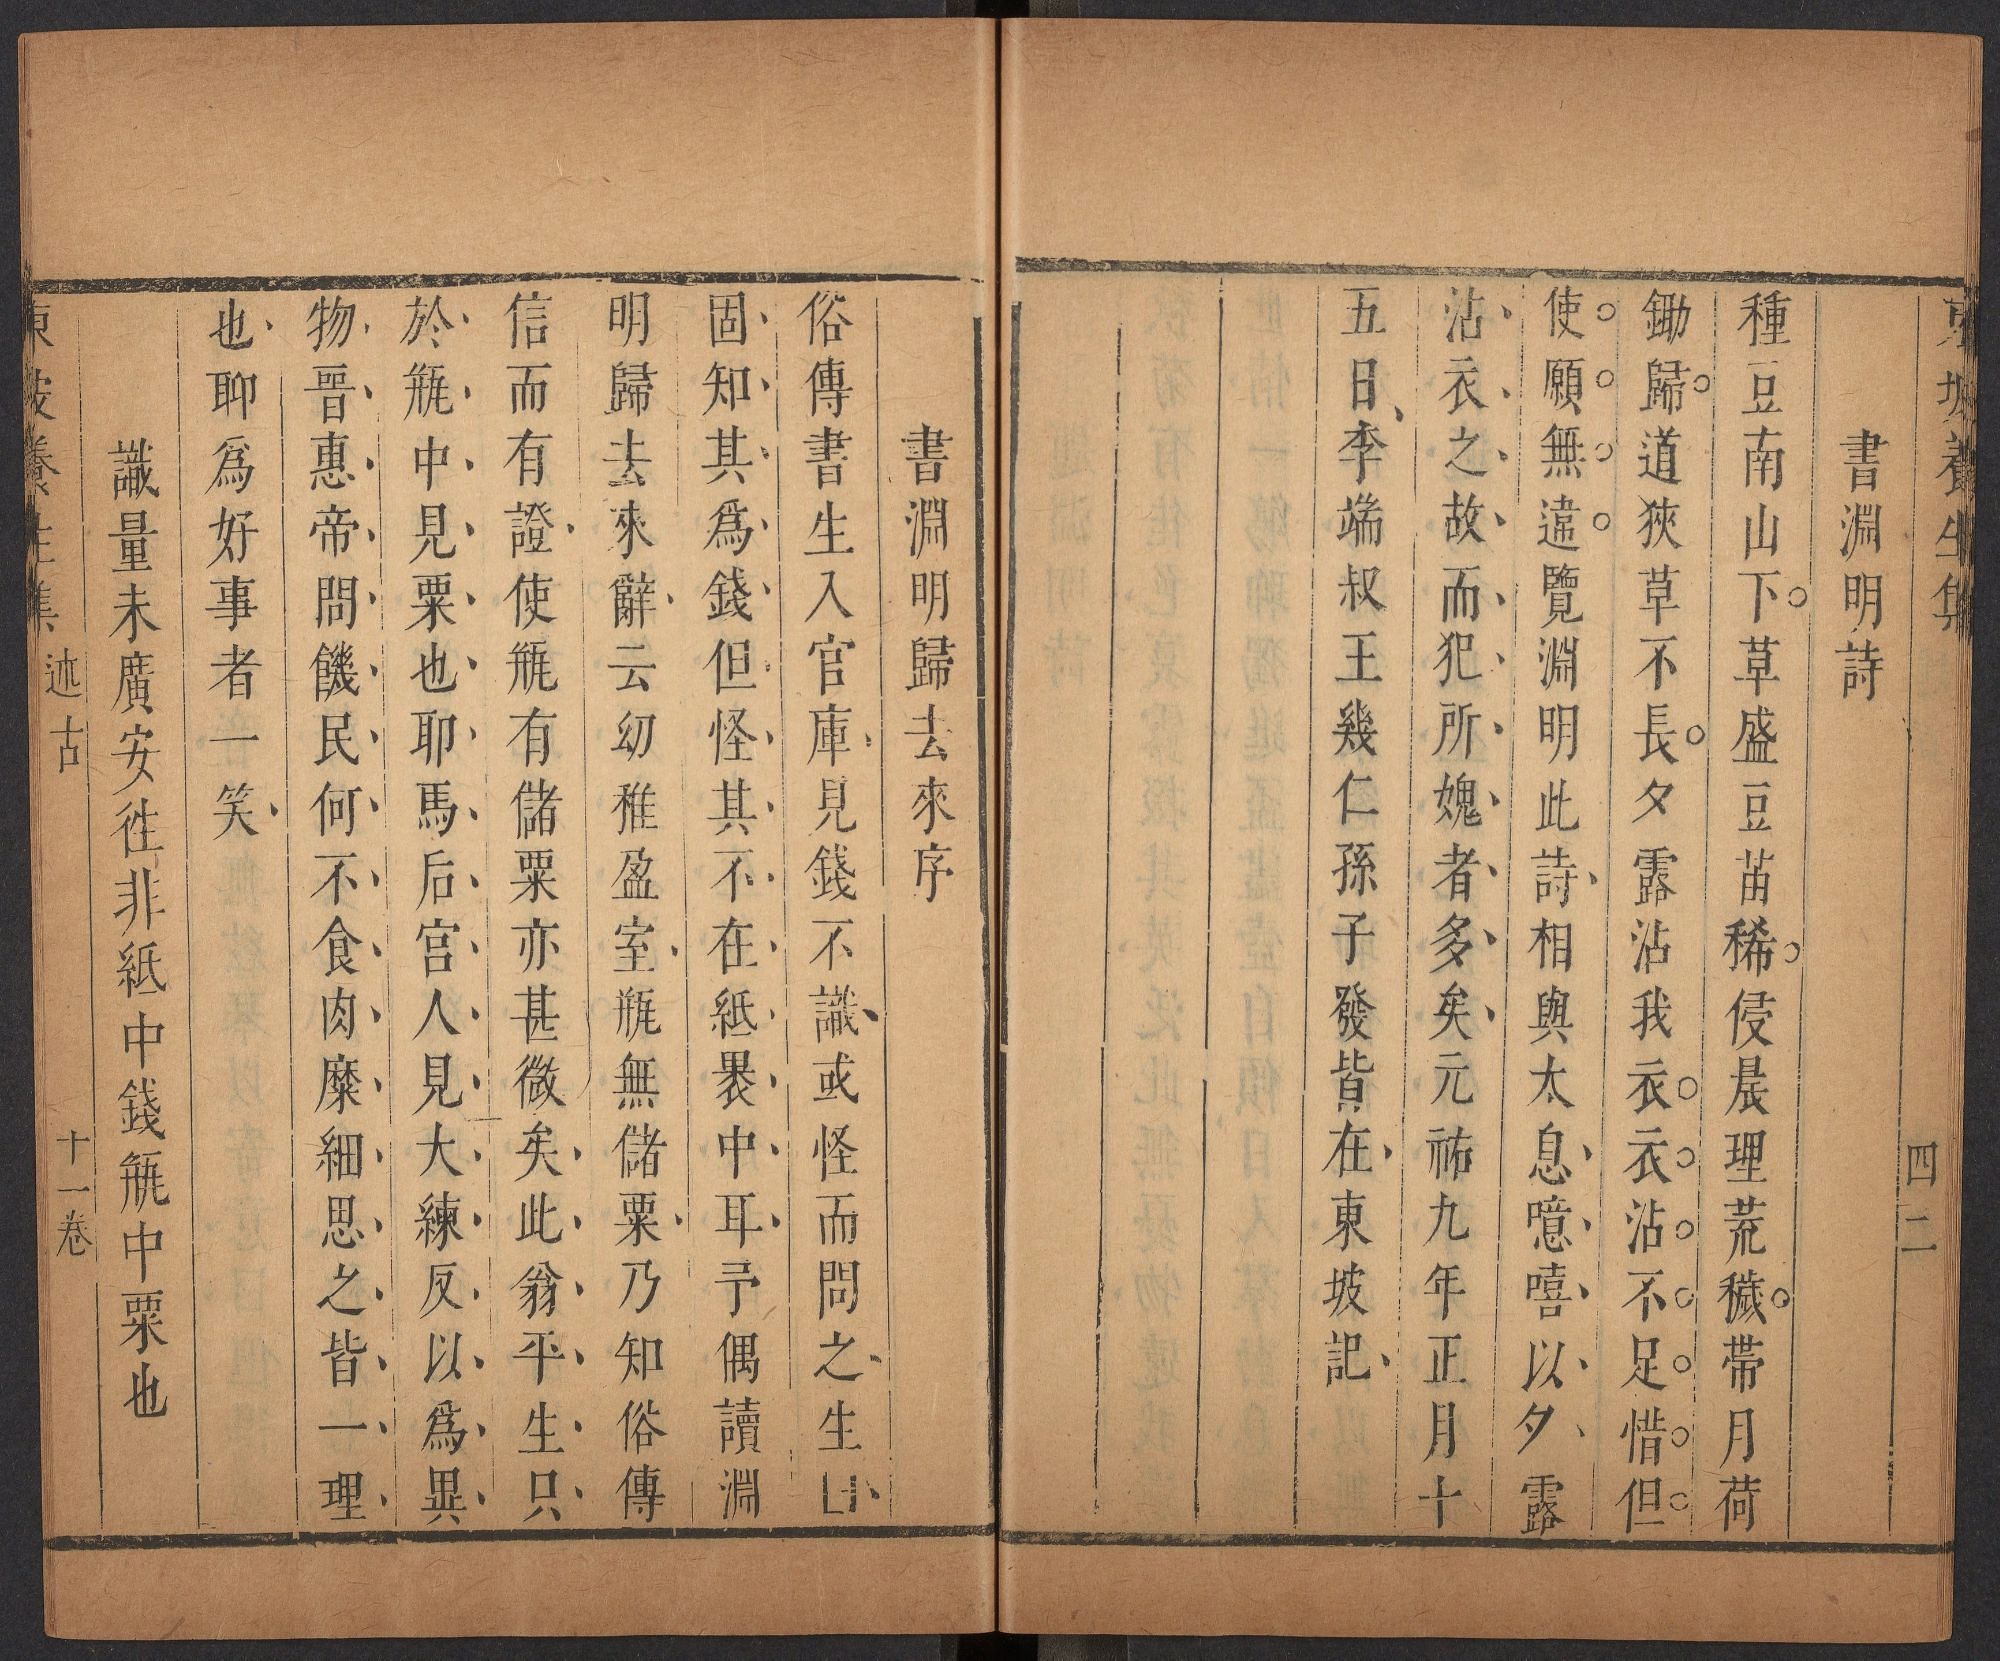 東坡養生集
四二
書淵明詩
種豆南山下草盛豆苗稀侵晨理荒穢帶月荷
鋤歸道狹草不長夕露沾我衣衣沾不足惜但
使願無違覽淵明此詩相與太息噫嘻以夕露
沾衣之故而犯所媿者多矣元祐九年正月十
五日李端叔王幾仁孫子發皆在東坡記
書淵明歸去來序
俗傳書生入官庫見錢不識或怪而問之生曰
固知其爲錢但怪其不在紙裹中耳予偶讀淵
明歸去來辭云幼稚盈室甁無儲粟乃知俗傳
信而有證使甁有儲粟亦甚微矣此翁平生只
於甁中見粟也耶馬后宫人見大練反以爲異
物晉惠帝問饑民何不食肉糜細思之皆一理
也聊爲好事者一笑
識量未廣安徃非紙中錢甁中粟也
東坡養生集
述古
十一卷